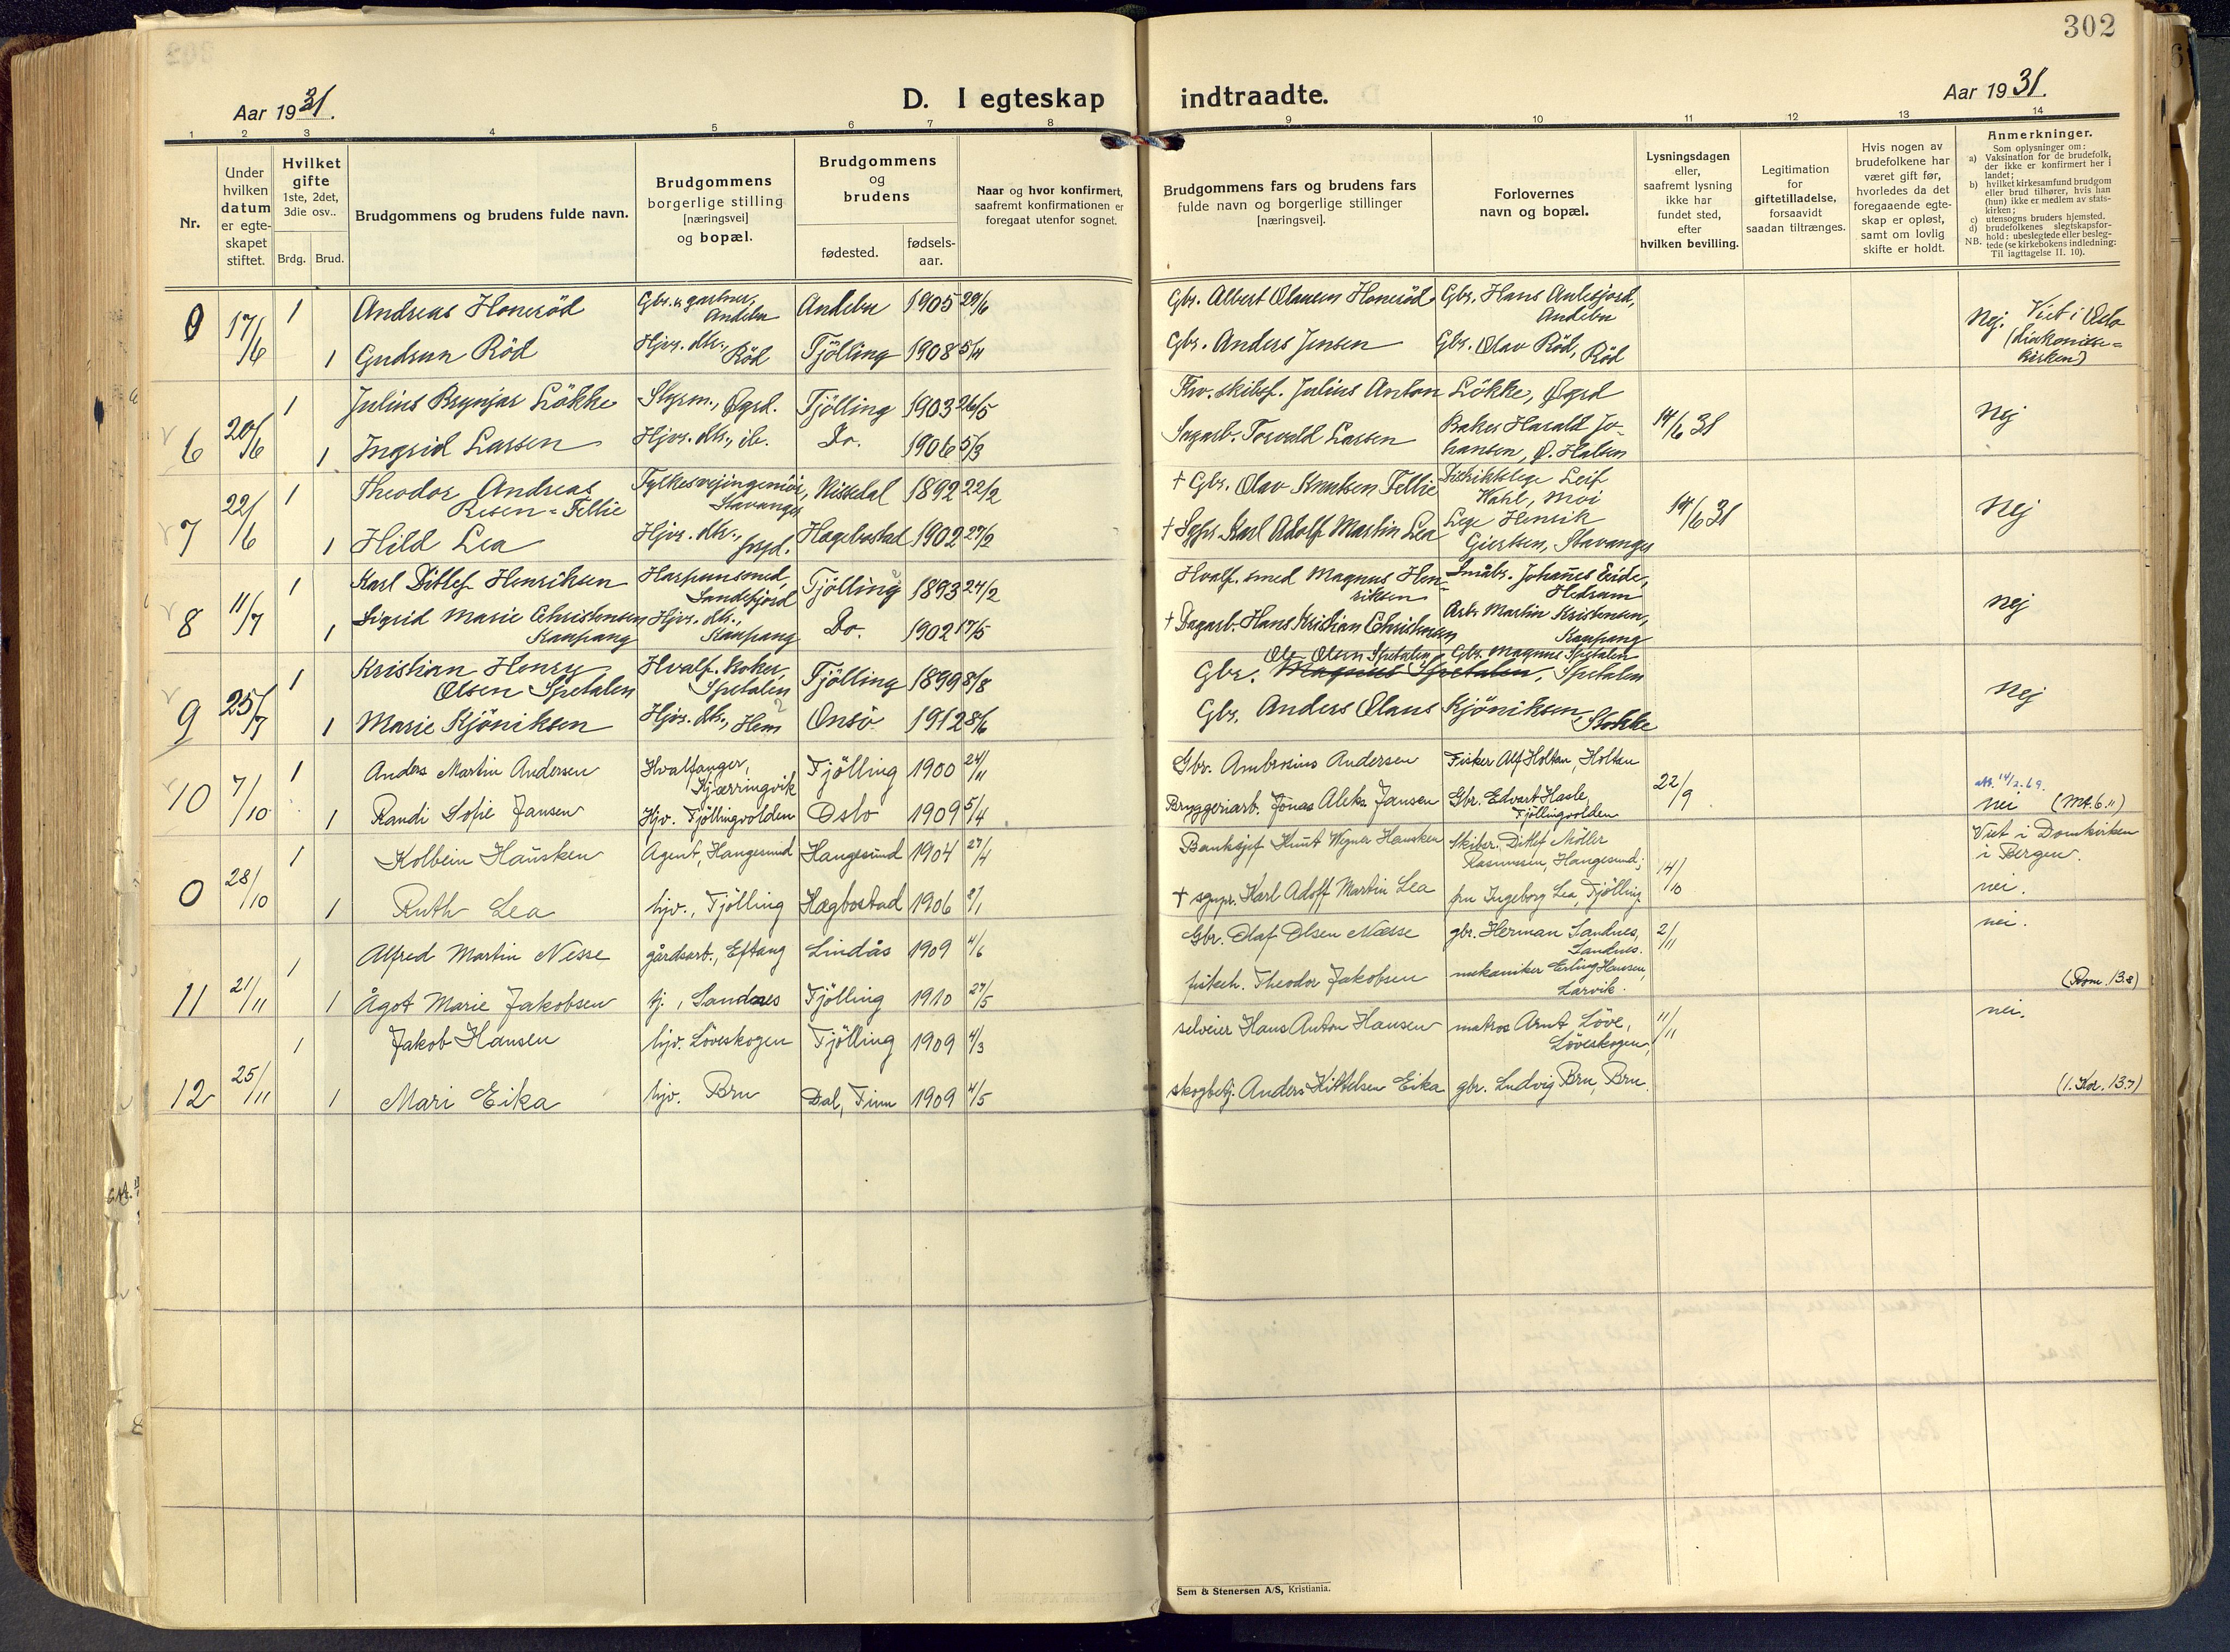 302
Aar 1931.
D. I egteskap indtraadte.
Aar 1931.
1 2 3 4 5 6 7 8 9 10 11 12 13 14
Nr.
Under hvilken datum er egte-skapet stiftet.
Hvilket gifte
1ste, 2det, 3die osv..
Brdg. Brud.
Brudgommens og brudens fulde navn.
Brudgommens borgerlige stilling [næringsvei] og bopæl.
Brudgommens og brudens
fødested. fødsels-aar.
Naar og hvor konfirmert, saafremt konfirmationen er foregaat utenfor sognet.
Brudgommens fars og brudens fars fulde navn og borgerlige stillinger [næringsvei].
Forlovernes navn og bopæl.
Lysningsdagen eller, saafremt lysning ikke har fundet sted, efter hvilken bevilling.
Legitimation for giftetilladelse, forsaavidt saadan tiltrænges.
Hvis nogen av brudefolkene har været gift før, hvorledes da det foregaaende egte-skap er opløst, samt om lovlig skifte er holdt.
Anmerkninger.
Som oplysninger om:
a) Vaksination for de brudefolk, der ikke er konfirmert her i landet;
b) hvilket kirkesamfund brudgom eller brud tilhører, hvis han (hun) ikke er medlem av stats-kirken;
c) utensogns bruders hjemsted.
d) brudefolkenes slegtskapsfor-hold: ubeslegtede eller besleg-tede (se kirkebokens indledning:
NB. Til iagttagelse II. 10).
0 17/6 1 Andreas Honeröd Gbr. & gartner, Andebu Andebu 1905 29/6 Gbr. Albert Olausen Honeröd Gbr. Hans Andebu Nej. Viet i Oslo (diakonisse-kirken)
1 Gudrun Röd Hjvr. dtr., Röd Tjölling 1908 5/4 Gbr. Anders Jensen Gbr. Olav Röd, Röd
6 20/6 1 Julius Brynjar Lökke Styrm., Øgrd. Tjölling 1903 26/5 Frv. skibsf. Julius Anton Lökke, Øgrd 14/6 31 Nej
1 Ingrid Larsen Hjvr. dtr., ib. Do. 1906 5/3 Sagarb. Torvald Larsen Baker Harald Jo-hansen, Ø. Halsen
7 22/6 1 Theodor Andreas Risen-Fellie Fylkesveiingeniör, Stavanger Nissedal 1892 22/2 † Gbr. Olav Knutsen Fellie Distriktslege Leif Wahl, Moi 14/6 31 Nej
1 Hild Lea Hjvr. dtr., Hægebostad 1902 27/2 † Sgpr. Karl Adolf Martin Lea Lege Henrik Giertsen, Stavanger
8 11/7 1 Karl Ditlef Henriksen Harpunsmed, Sandefjord Tjölling 1893 24/2 Hvalf. smed Magnus Hen-riksen Småbr. Johannes Eide, Hedrum Nej
1 Sigrid Marie Christensen Kaupang Hjvr. dtr., Kaupang Do. 1902 17/5 † Dagarb. Hans Kristian Christensen Arb. Martin Kristensen, Kaupang
9 25/7 1 Kristian Henry Olsen Spetalen Hvalf. koker, Spetalen Tjölling 1899 8/8 Gbr. Ole Olsen Spetalen Magnus Spetalen, Gbr. Magnus Spetalen Spetalen Nej
1 Marie Kjöniksen Hjvr. dtr., Hem Onsö 1912 8/6 Gbr. Anders Olaus Kjöniksen, Stokke
10 7/10 1 Anders Martin Andersen Hvalfanger, Kjærringvik Tjölling 1900 24/11 Gbr. Ambrosius Andersen Fisker Alf Holtan, Holtan 22/9 nei (Mt. 6.11)
1 Randi Sofie Jansen Hjv. Tjöllingvolden Oslo 1909 5/4 Bryggeriarb. Jonas Aleks. Jansen Gbr. Edvart Hasle, Tjöllingvolden
0 28/10 1 Kolbein Hausken Agent, Haugesund Haugesund 1904 27/4 Banksjef Knut Wegner Hausken Skibsr. Ditlef Möller Rasmussen, Haugesund; 14/10 Viet i Domkirken i Bergen.
1 Ruth Lea hjv., Tjölling Hægbostad 1906 2/1 † sgnpr. Karl Adolf Martin Lea fru Ingeborg Lea, Tjölling nei.
11 21/11 1 Alfred Martin Nesse gårdsarb., Eftang Lindås 1909 4/6 Gbr. Olaf Olsen Næsse gbr. Herman Sandnes, Sandnes. 2/11 nei.
1 Ågot Marie Jakobsen tj., Sandnes Tjölling 1910 27/5 fiskeh. Theodor Jakobsen mekaniker Erling Hansen, Larvik. (Rom. 13.8)
12 25/11 1 Jakob Hansen hjv. Löveskogen Tjölling 1909 4/3 selveier Hans Anton Hansen matros Arnt Löve, Löveskogen, 11/11 nei.
1 Mari Eika hjv. Bru Dal, Tinn 1909 4/5 skogbetj. Anders Kittelsen Eika gbr. Ludvig Bru, Bru. (1. Kor. 13.7)
Sem & Stenersen A/S, Kristiania.